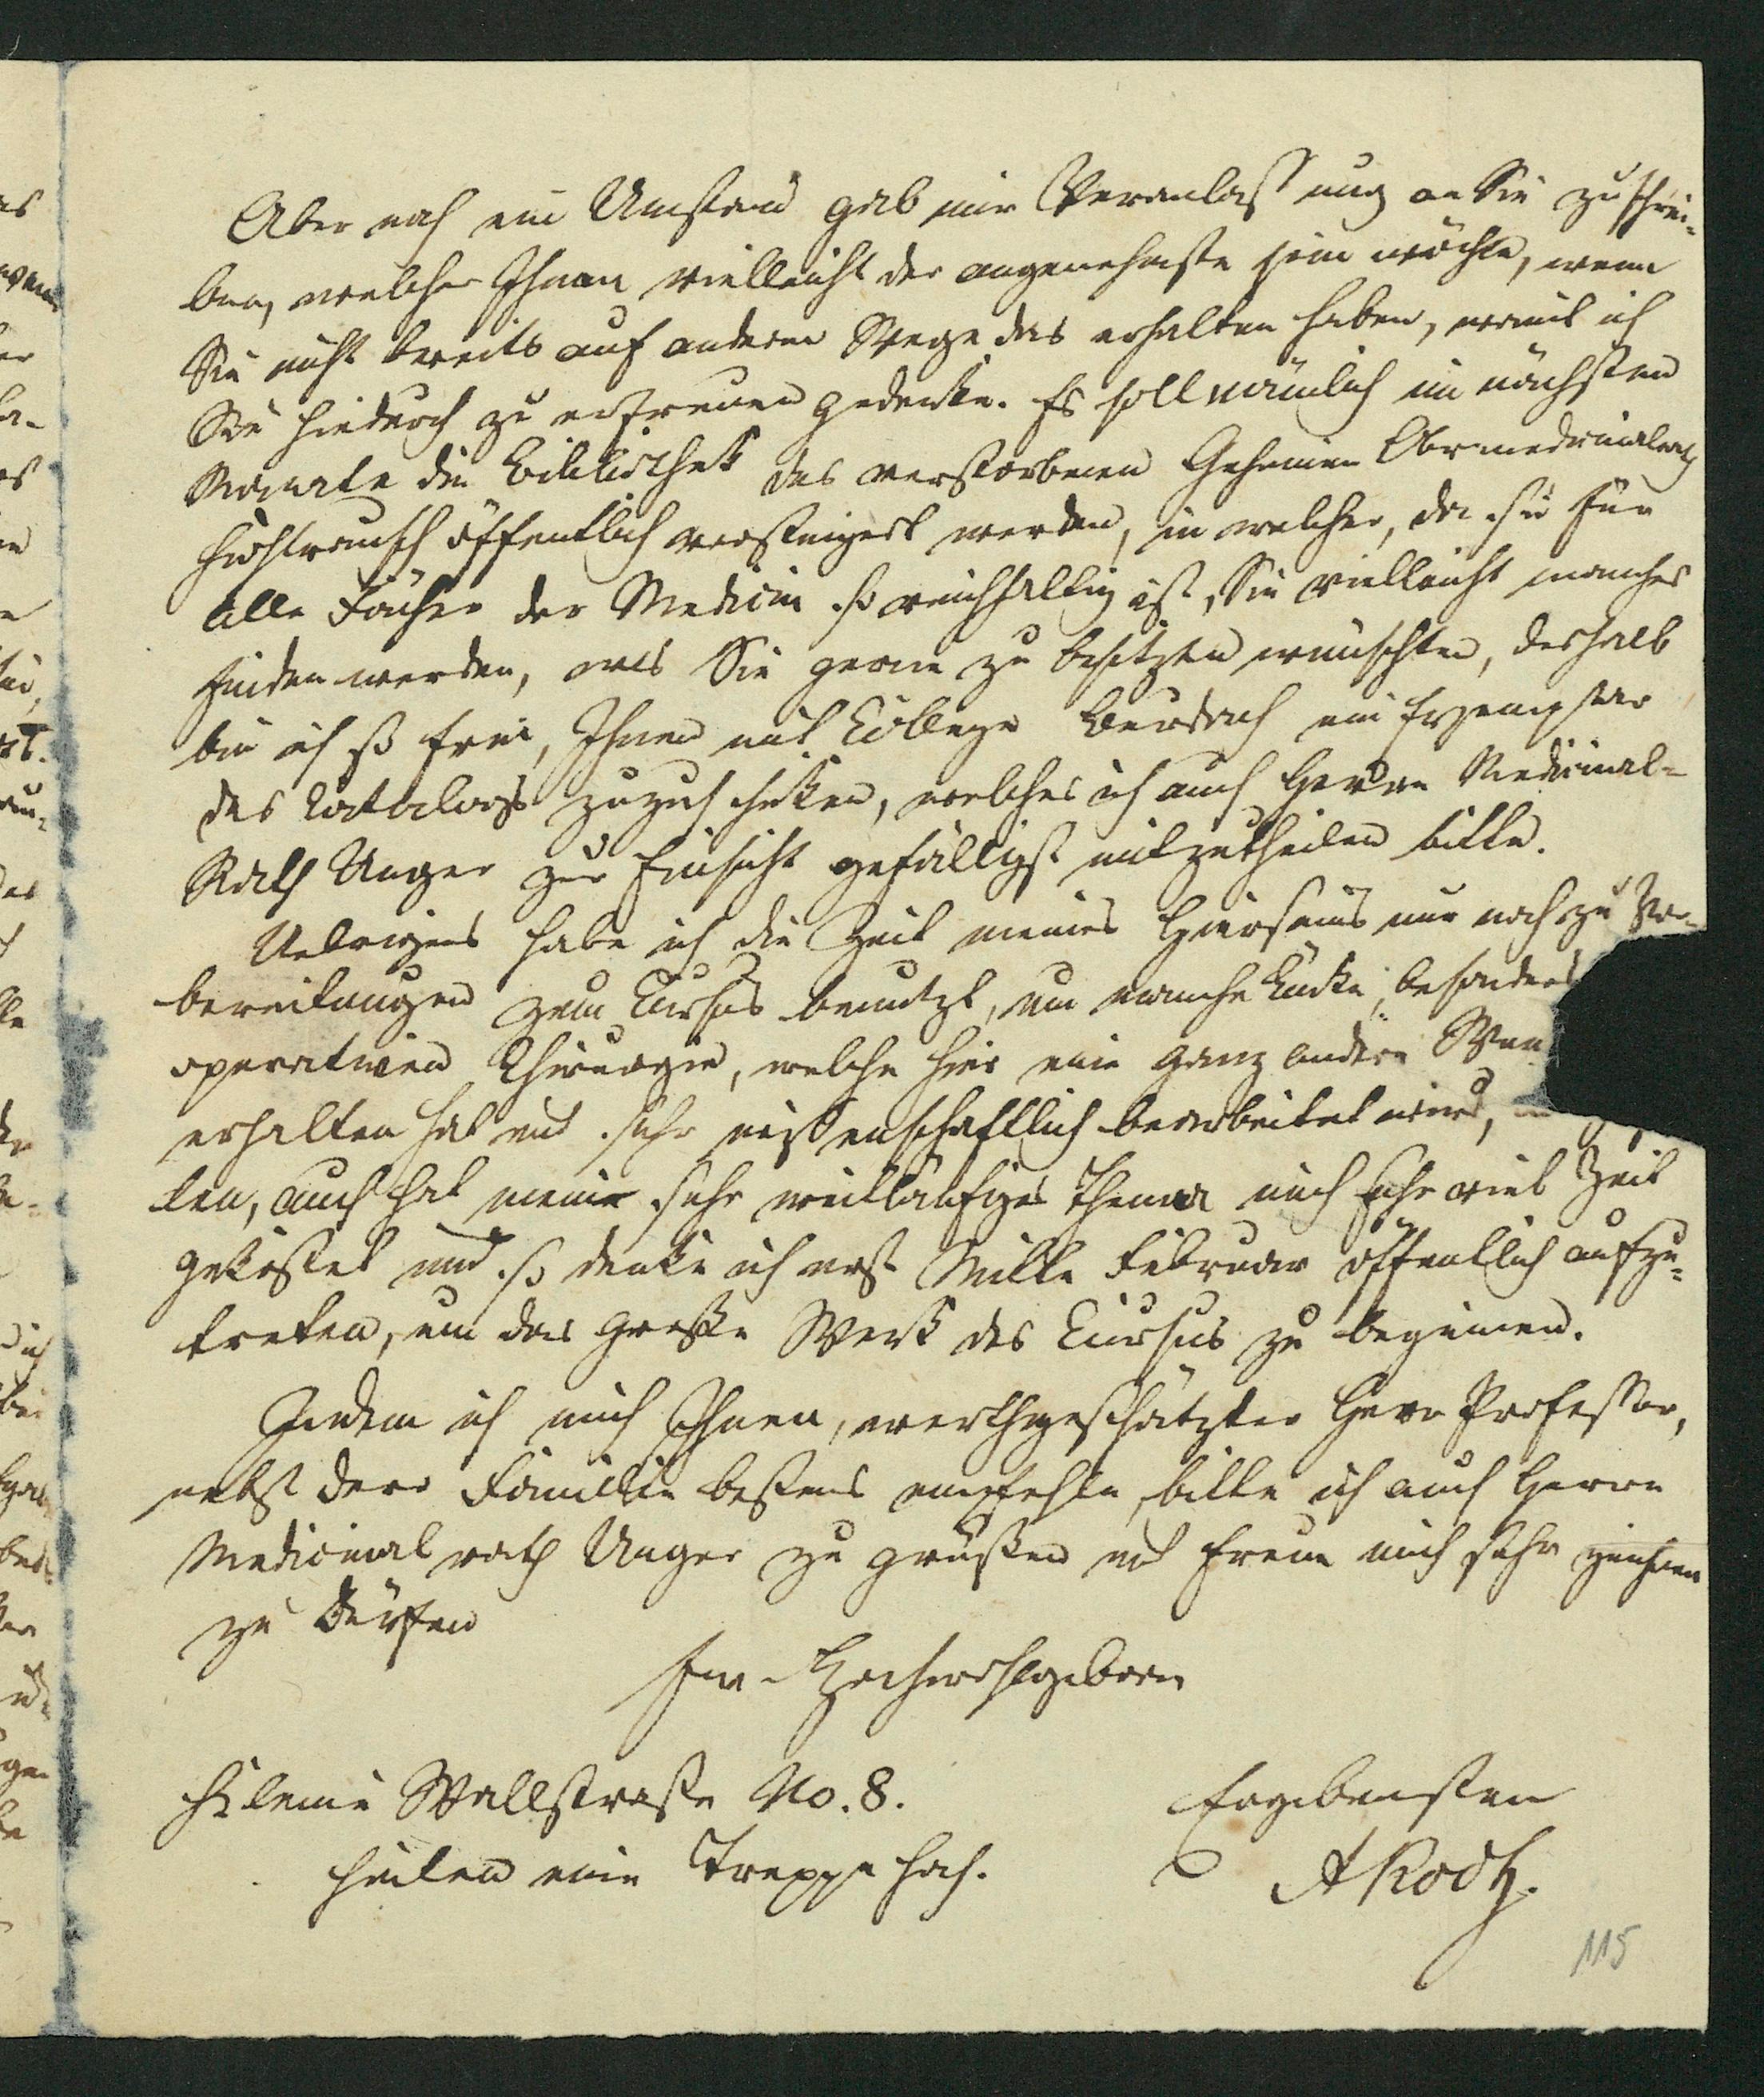 Aber noch ein Umstand gab mir Veranlassung an Sie zu schrei-
ben, welcher Ihnen vielleicht der angenehmste sein möchte, wenn
Sie nicht bereits auf anderem Wege das erhalten haben, womit ich
Sie hiedurch zu erfreuen gedenke. Es soll nämlich im nächsten
Monate die Bibliothek des verstorbenen Geheimen Obermedicinalrath
öffentlich versteigert werden, in welcher, da sie für
alle Fächer der Medicin so reichhaltig ist, Sie vielleicht manches
finden werden, was Sie gerne zu besitzen wünschten, deshalb
bin ich so frei, Ihnen und College Burdach ein Exemplar
des Catalogs zuzuschicken, welches ich auch Herrn Medicinal-
Rath Unger zur Einsicht gefälligst mitzutheilen bitte.
Uebrigens habe ich die Zeit meines Hierseins nur noch zu Vor-
bereitungen zum Cursus benutzt, um manche Lücke, besonders
operativen Chirurgie, welche hier eine ganz andere
erhalten hat und sehr wissenschaftlich bearbeitet wird,
len, auch hat mein sehr weitläufiges Thema mich sehr viel Zeit
gekostet und so denke ich erst Mitte Februar öffentlich aufzu-
treten, um das große Werk des Cursus zu beginnen.
Indem ich mich Ihnen, werthgeschätzter Herr Professor,
nebst Dero Familie bestens empfehle, bitte ich auch Herrn
Medicinalrath Unger zu grüßen und freue mich sehr zeichnen
zu dürfen
Ew. Hochwohlgeboren
Kleine Wallstraße No. 8.
hinten eine Treppe hoch.
Ergebensten
A Koch.
115